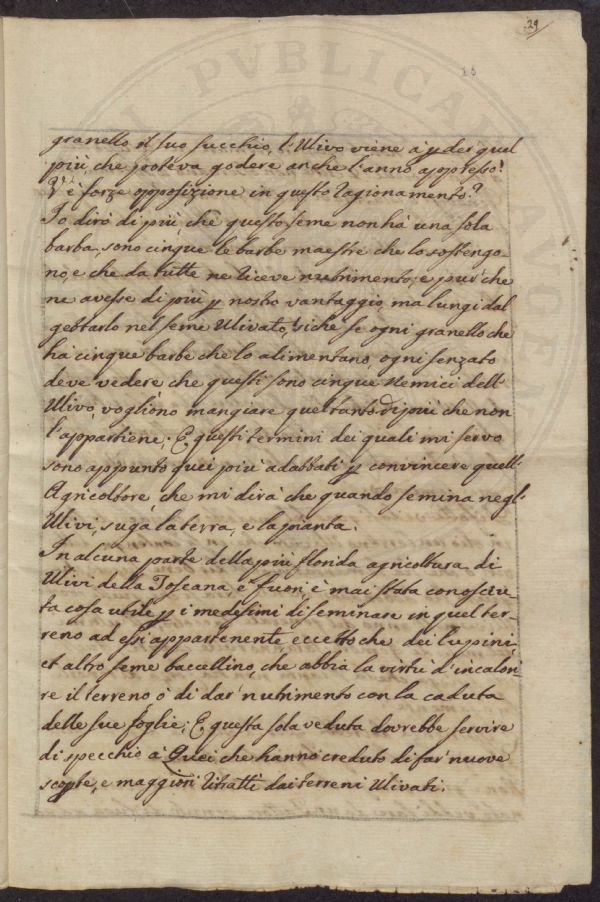 29
granello il suo succhio, l'Ulivo viene à p̱der quel
più, che poteva godere anche l'anno appresso?
V'è forze opposizione in questo ragionamento?
Io dirò di più, che questo seme non hà una sola
barba, sono cinque le barbe maestre che lo sostengo-
no, e che da tutte ne riceve nutrimento; e pur'che
ne avesse di più p̱ nostro vantaggio, ma lungi dal
gettarlo nel seme Ulivato; siche se ogni granello che
hà cinque barbe che lo alimentano, ogni senzato
deve vedere, che questi sono cinque Nemici dell'
Ulivo, vogliono mangiare quel tanto di più che non
l'appartiene. E questi termini dei quali mi servo
sono appunto quei più adattati p̱ convincere quell'
Agricoltore, che mi dirà che quando semina negl'
Ulivi, suga la terra, e la pianta.
In alcuna parte della più florida agricoltura di
Ulivi della Toscana, e fuori, è mai stata conosciu-
ta cosa utile p̱ i medesimi di seminare in quel ter-
reno ad essi appartenente eccetto che dei lupini,
et altro seme baccellino, che abbia la virtù d'incalori-
re il terreno ò di dar' nutrimento con la caduta
delle sue foglie; E questa sola veduta dovrebbe servire
di specchio à Quei che hanno creduto di far' nuove
scop̱te, e maggiori ritratti dai terreni Ulivati.